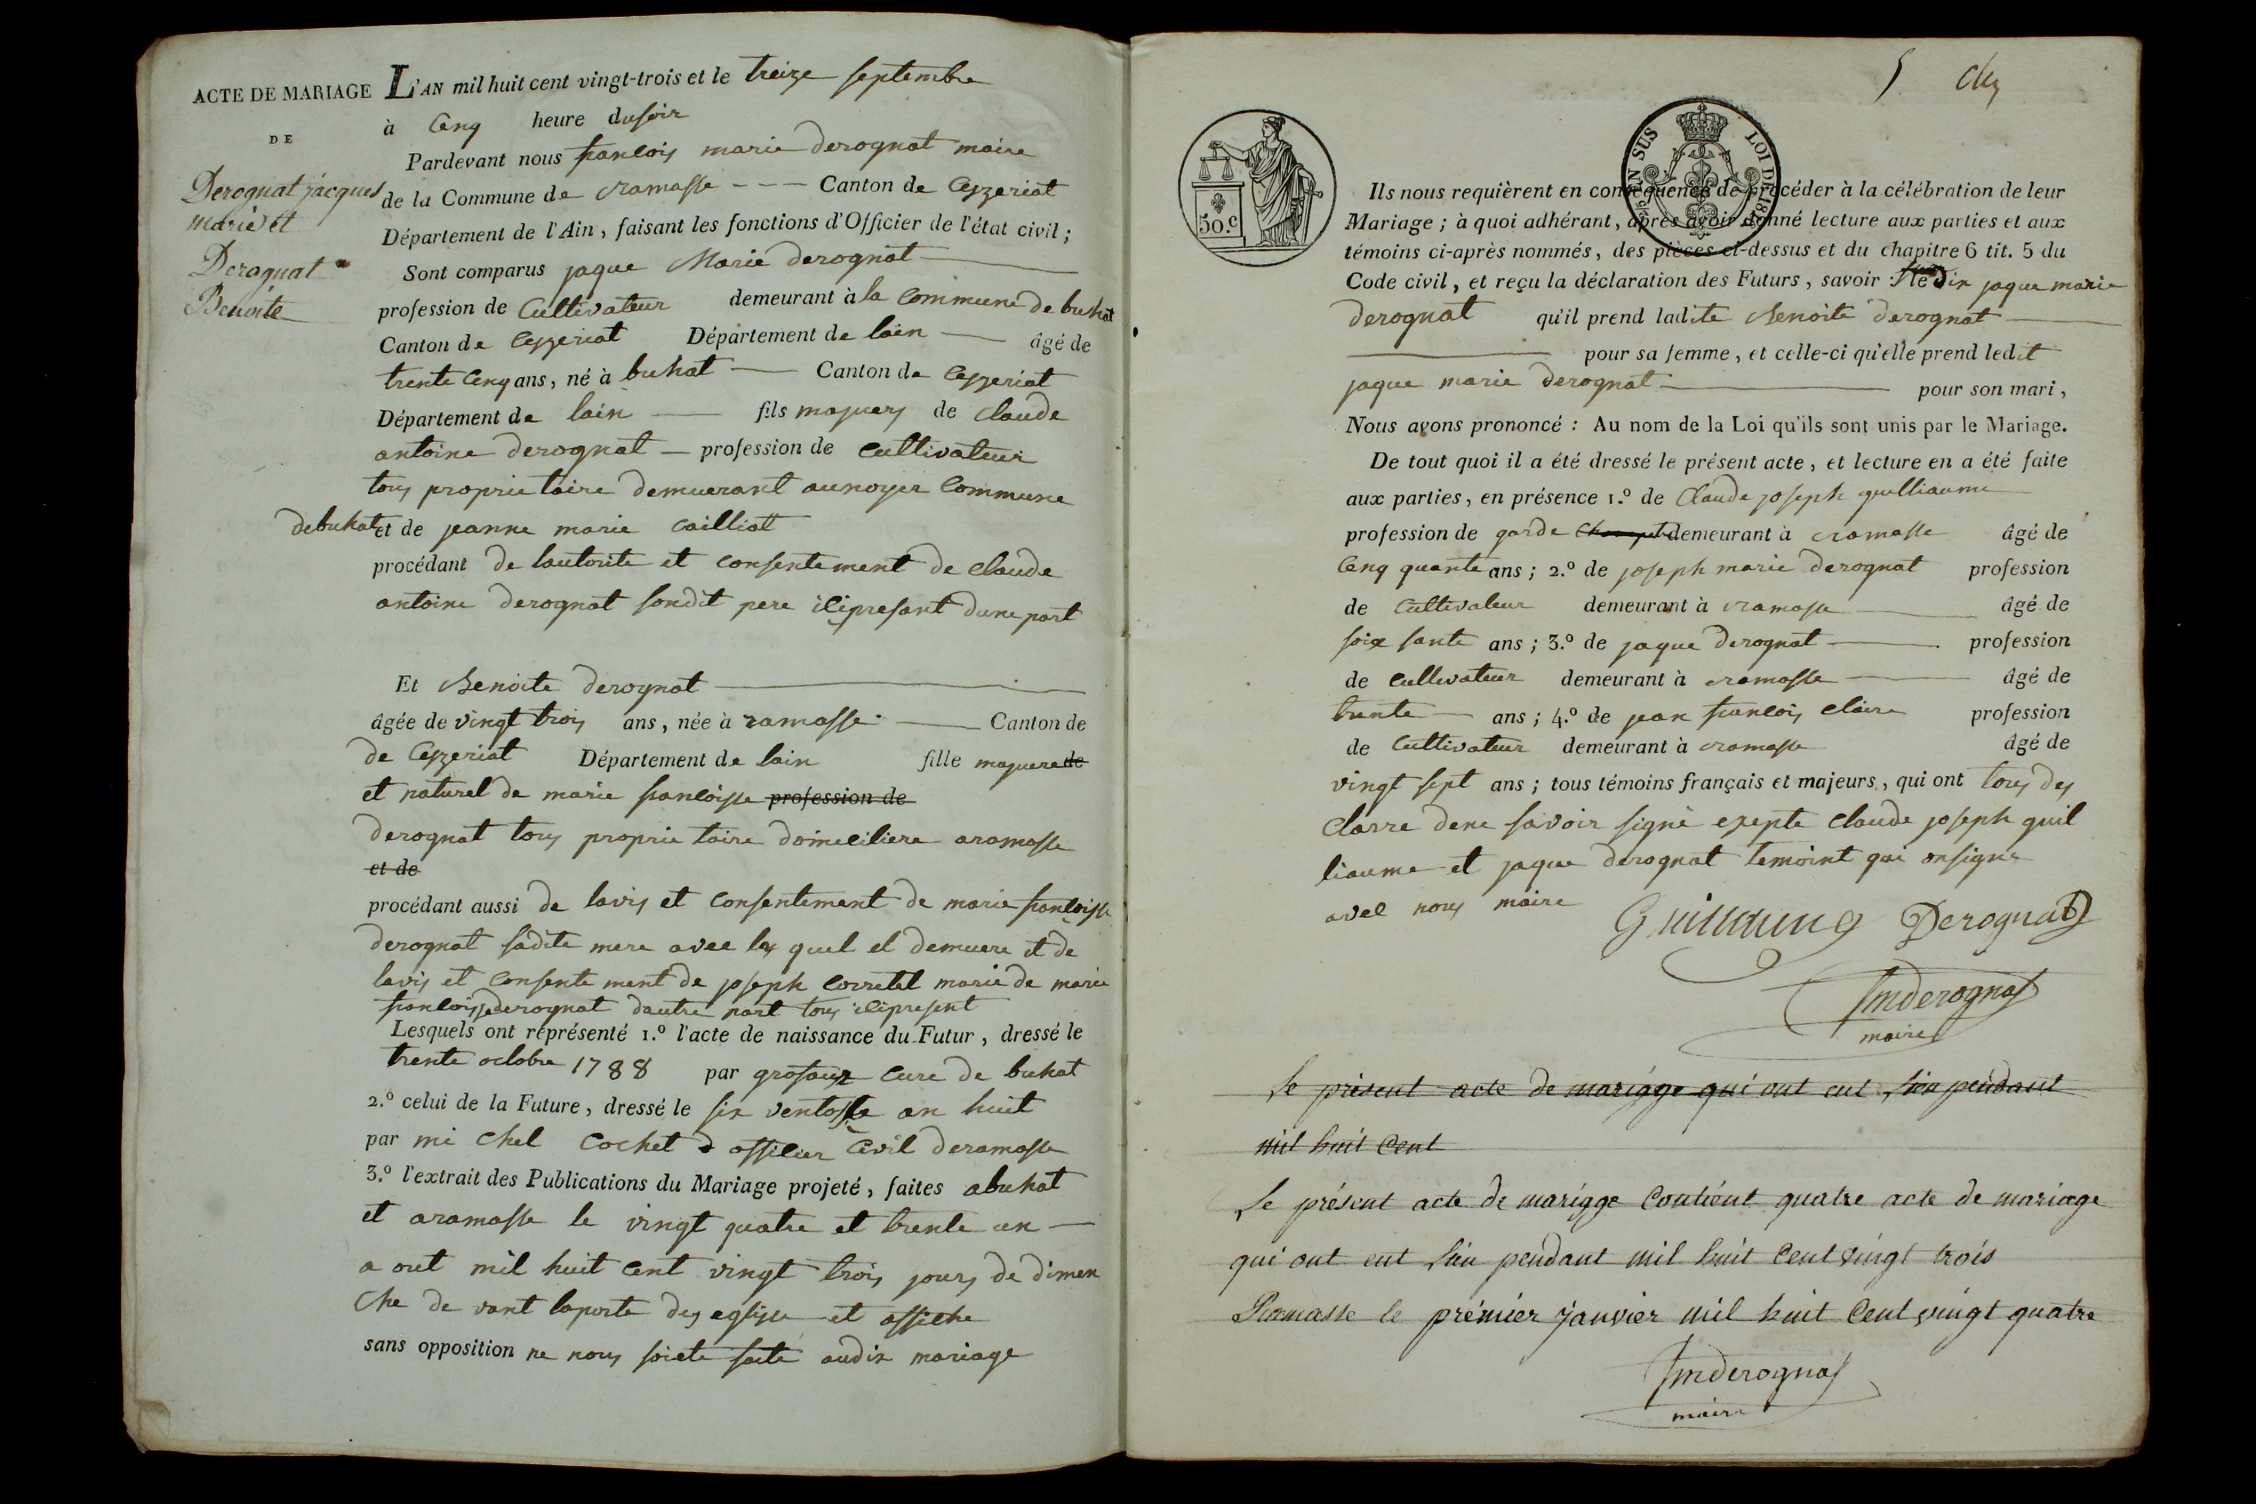 ACTE DE MARIAGE
DE
Derognat jacques
marie et
Derognat
Benoite
L'AN mil huit cent vingt-trois et le treize septembre
à cenq heure dusoir
Pardevant nous francois marie derognat maire
de la Commune de ramasse - - - Canton de Ceyzeriat
Département de l'Ain, faisant les fonctions d'Officier de l'état civil;
Sont comparus jaque Marie derognat
profession de Cultivateur demeurant à la commune de buhat
Canton de Ceyzeriat Département de lain âgé de
trente cenq ans, né à buhat Canton de Ceyzeriat
Département de lain fils majeurs de claude
antoine derognat profession de cultivateur
tous proprietaire demuerant aunoyer commune
debuhat et de jeanne marie cailliat
procédant de lautorite et consentement de claude
antoine derognat sondit pere icipresant dune part
Et Benoite derognat
âgée de vingt trois ans, née à ramasse Canton de
de Ceyzeriat Département de lain fille majuere de
et naturel de marie francoisse profession de
derognat tous proprietaire domeciliere aramasse
et de
procédant aussi de lavis et consentement de marie francoisse
derognat sadite mere avec la quel el demuere et de
lavis et consentement de joseph corretel marie de marie
francoisse derognat dautre part tous icipresent
Lesquels ont représenté 1.º l'acte de naissance du Futur, dressé le
trente octobre 1788 par cure de buhat
2.º celui de la Future, dressé le six ventosse an huit
par mi chel cochet officier civil deramasse
3.º l'extrait des Publications du Mariage projeté, faites abuhat
et aramasse le vingt quatre et trente un
a out mil huit cent vingt trois jours de dimen
che de vant laporte des eglisse et affiche
sans opposition ne nous soiete faite audix mariage
5
50.C
TIMB. SUS LOI DE 1816
Ils nous requièrent en conséquence de procéder à la célébration de leur
Mariage; à quoi adhérant, après avoir donné lecture aux parties et aux
témoins ci-après nommés, des pièces ci-dessus et du chapitre 6 tit. 5 du
Code civil, et reçu la déclaration des Futurs, savoir: ledix jaque marie
derognat qu'il prend ladite Benoite derognat
pour sa femme, et celle-ci qu'elle prend ledit
jaque marie derognat pour son mari,
Nous avons prononcé: Au nom de la Loi qu'ils sont unis par le Mariage.
De tout quoi il a été dressé le présent acte, et lecture en a été faite
aux parties, en présence 1.º de Claude joseph guilliaume
profession de garde demeurant à ramasse âgé de
cenq quante ans; 2.º de joseph marie derognat profession
de cultivateur demeurant à ramasse âgé de
soix sante ans; 3.º de jaque derognat profession
de cultivateur demeurant à ramasse âgé de
trente ans; 4.º de jean francois claire profession
de cultivateur demeurant à ramasse âgé de
vingt sept ans; tous témoins français et majeurs, qui ont tous des
clarre dene savoir signè exepte claude joseph guil
liaume et jaque derognat temoint qui onsigne
avec nous maire
Guillaume Derognat
fmderognat
maire
Le présent acte de mariage qui ont eut lieu pendant
mil huit cent
Le présent acte de mariage contient quatre acte de mariage
qui ont eut lieu pendant mil huit cent vingt trois
Ramasse le prémier janvier mil huit cent vingt quatre
fmderognat
maire